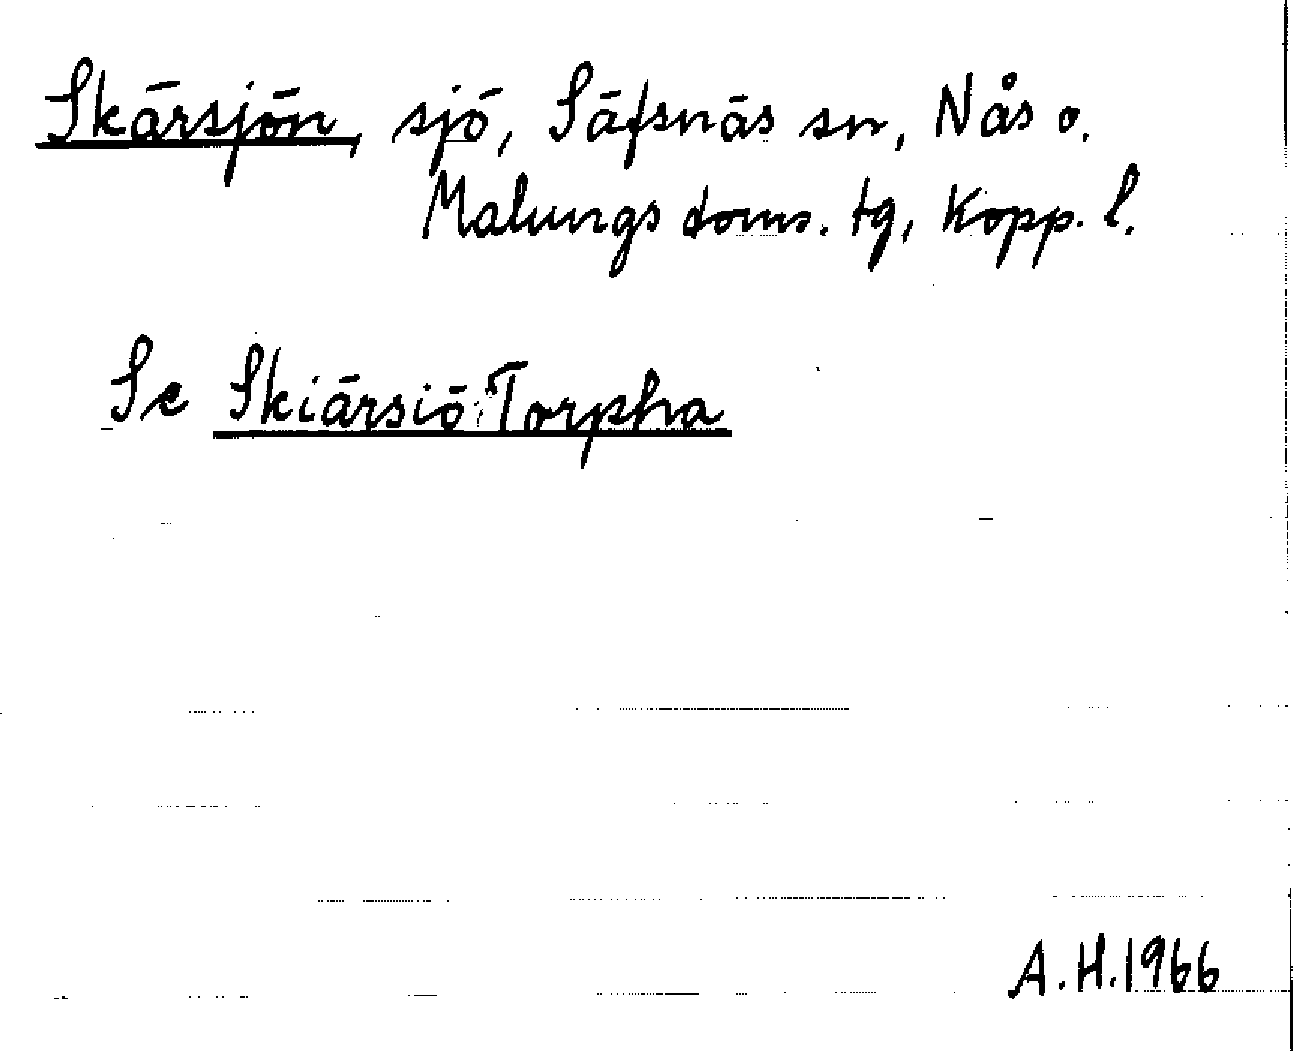 Skärsjön, sjö, Säfsnäs sn, Nås o.
Malungs doms. tg, Kopp. l.
Se Skiärsiö Torpha
A.H.1966